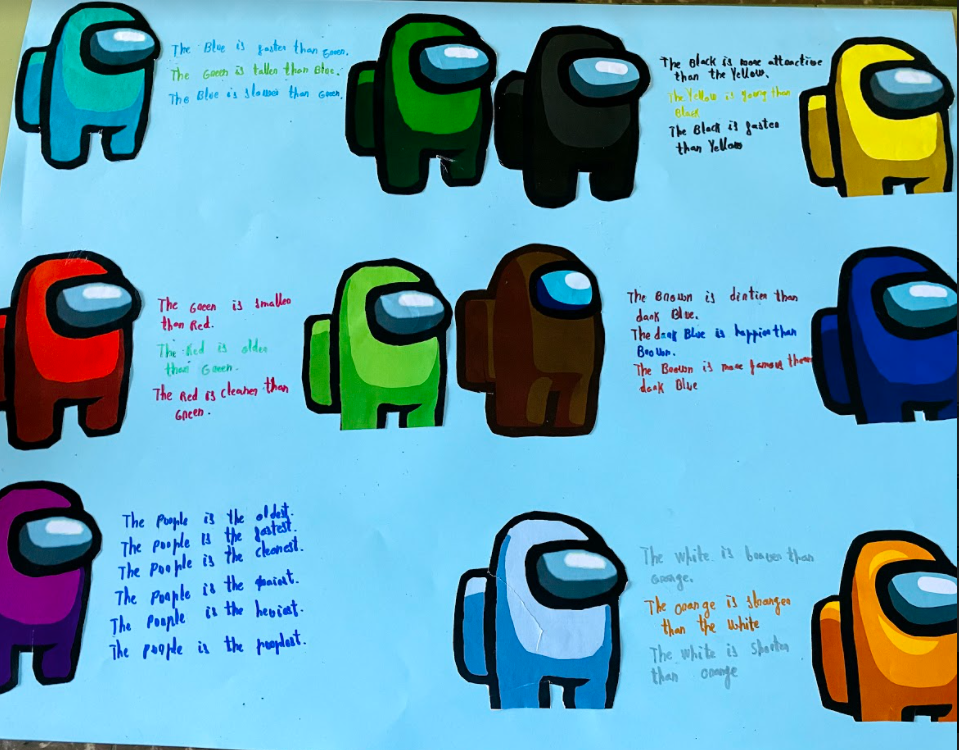 The Blue is faster than Green.
The Green is taller than Blue.
The Blue is slower than Green.
The Black is more attractive
than the Yellow.
The Yellow is young than
Black
The Black is faster
than Yellow
The Green is smaller
than Red.
The Red is older
than Green.
The Red is cleaner than
Green.
The Brown is dirtier than
dark Blue.
The dark Blue is happier than
Brown.
The Brown is more famous than
dark Blue
The Pourple is the oldest.
The Pourple is the fastest.
The Pourple is the cleanest.
The Pourple is the
The Pourple is the heviest.
The Pourple is the
The White is braver than
orange.
The orange is stronger
than the White
The White is shorter
than orange